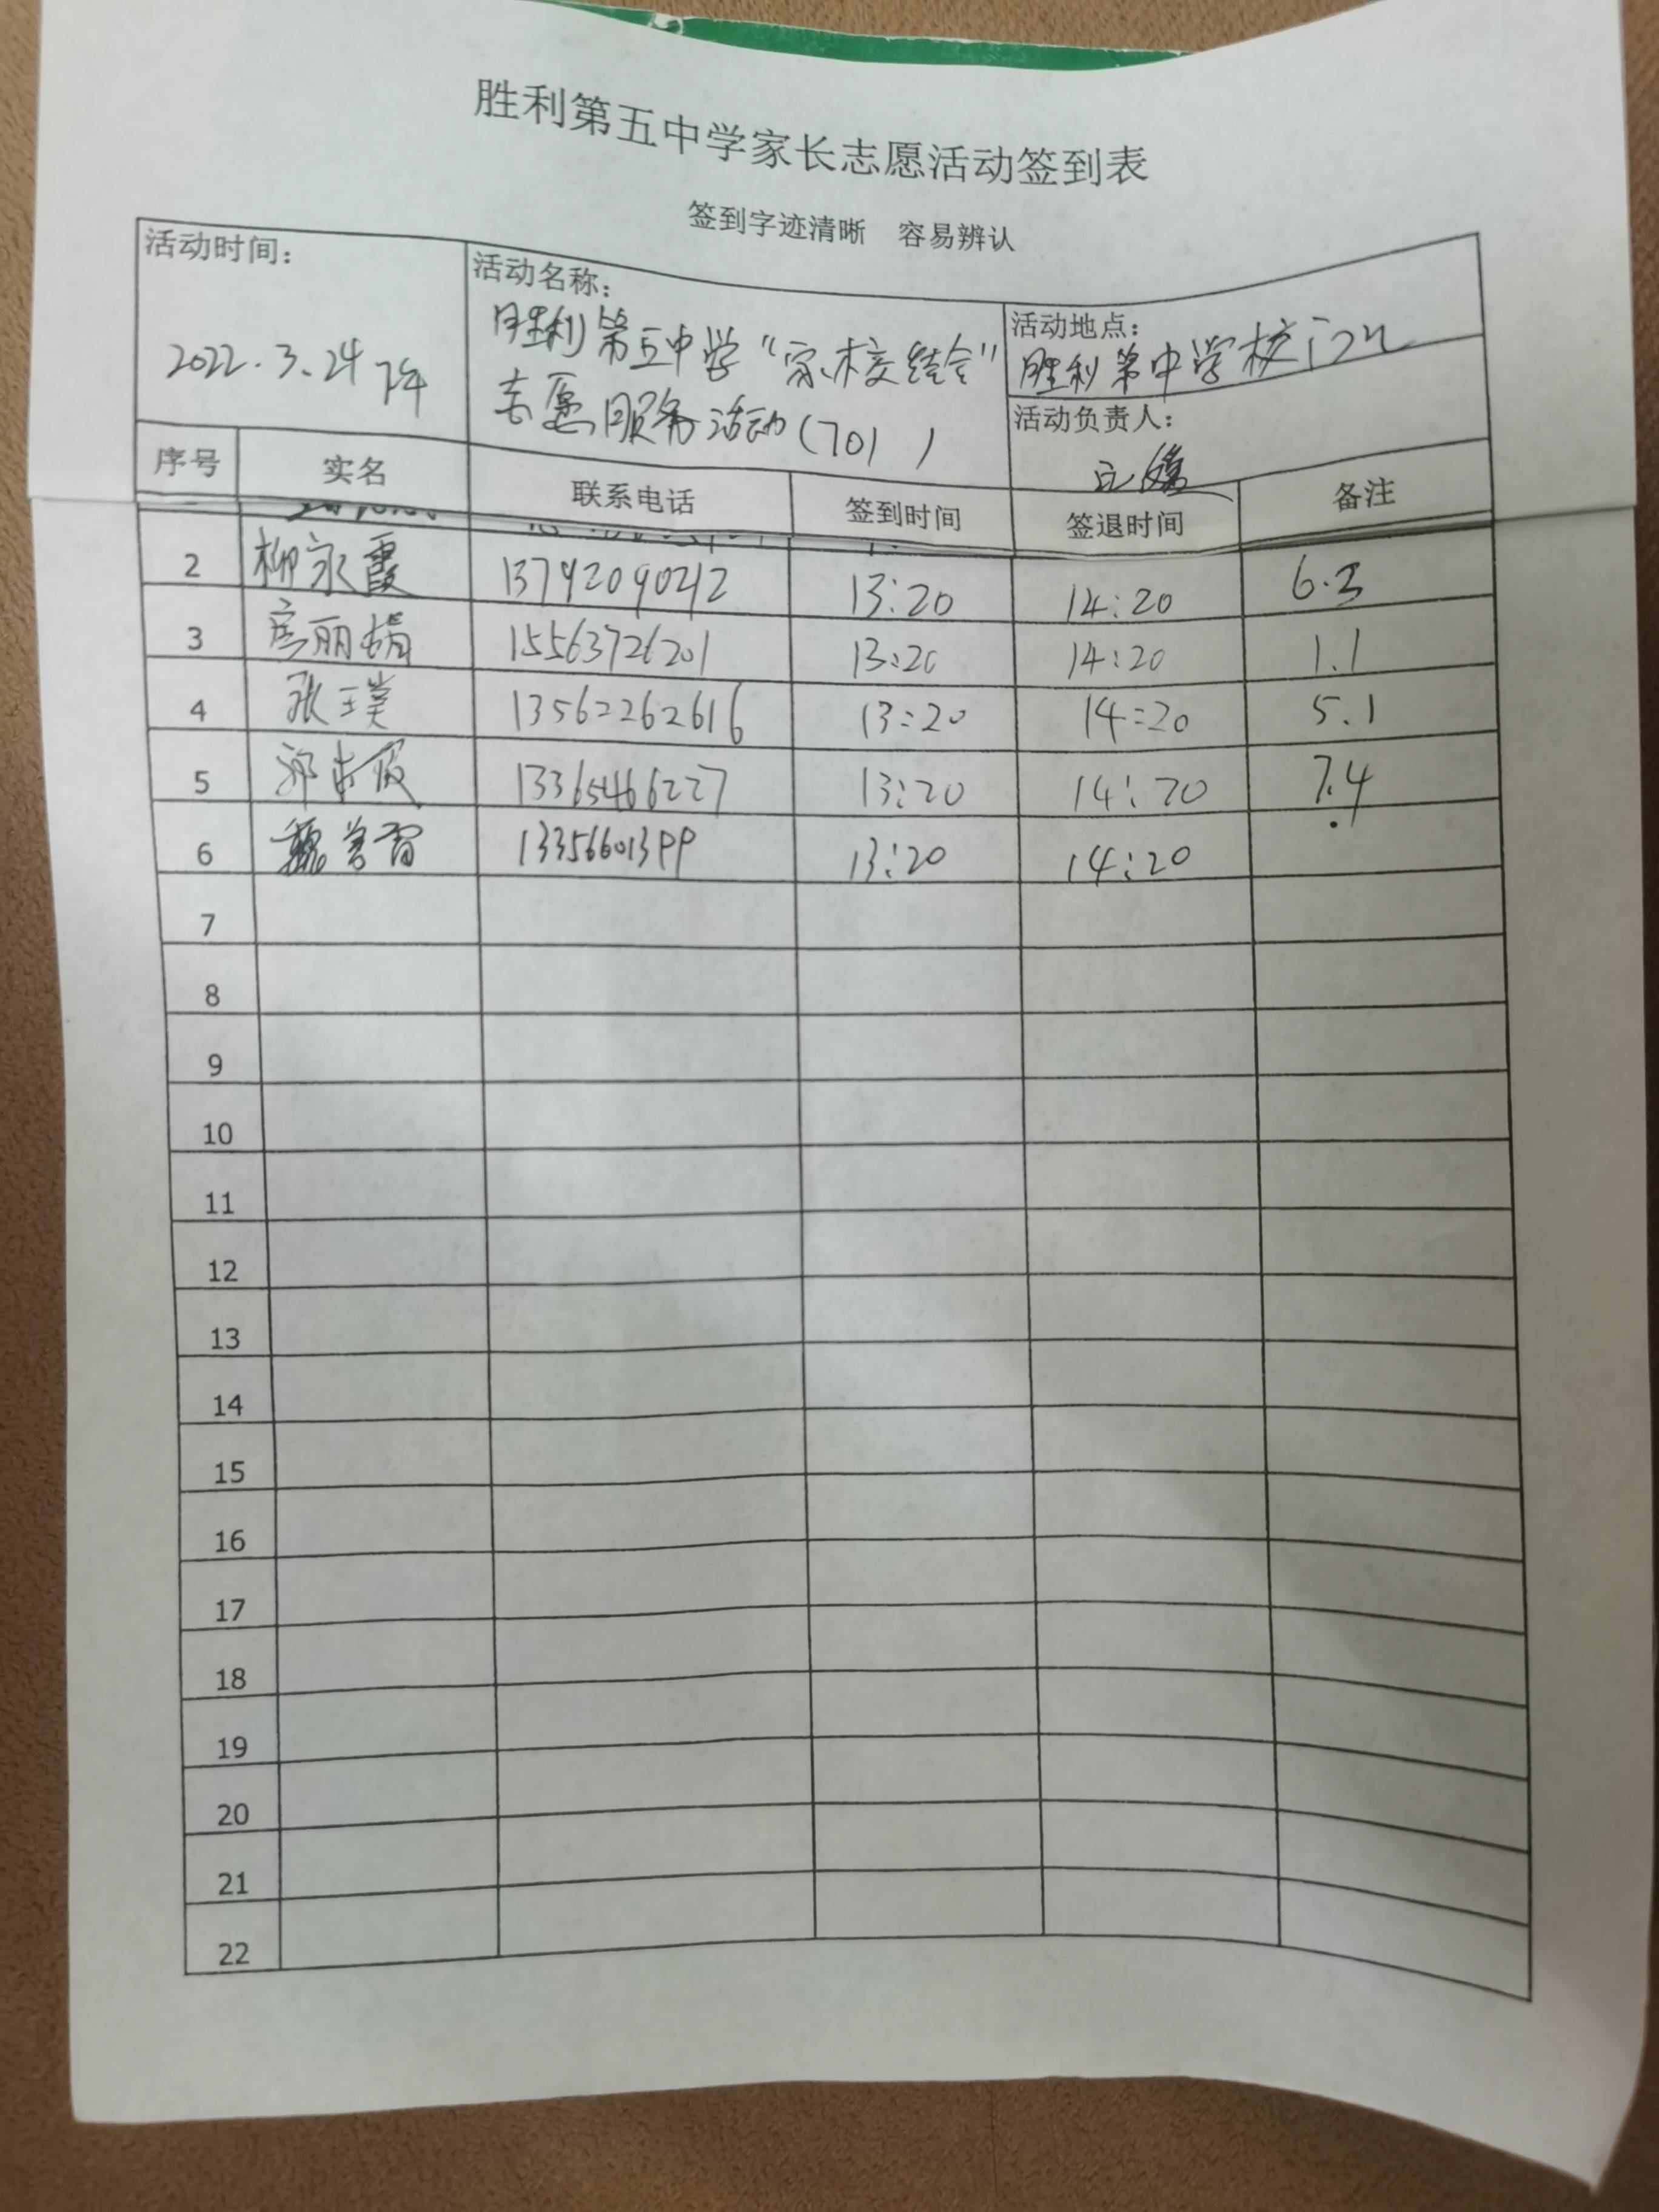 胜利第五中学家长志愿活动签到表
签到字迹清晰 容易辨认
活动时间：
2022.3.24 下午
活动名称：
胜利第五中学“家校结合”
志愿服务活动（701 ）
活动地点：
胜利第中学校门口
活动负责人：
序号 实名 联系电话 签到时间 签退时间 备注
2 柳永霞 13792090212 13:20 14:20 6.3
3 丽娟 15563726201 13:20 14:20 1.1
4 张璞 13562262616 13:20 14:20 5.1
5 郭 13365466227 13:20 14:20 7.4
6 魏 13356601399 13:20 14:20
7
8
9
10
11
12
13
14
15
16
17
18
19
20
21
22